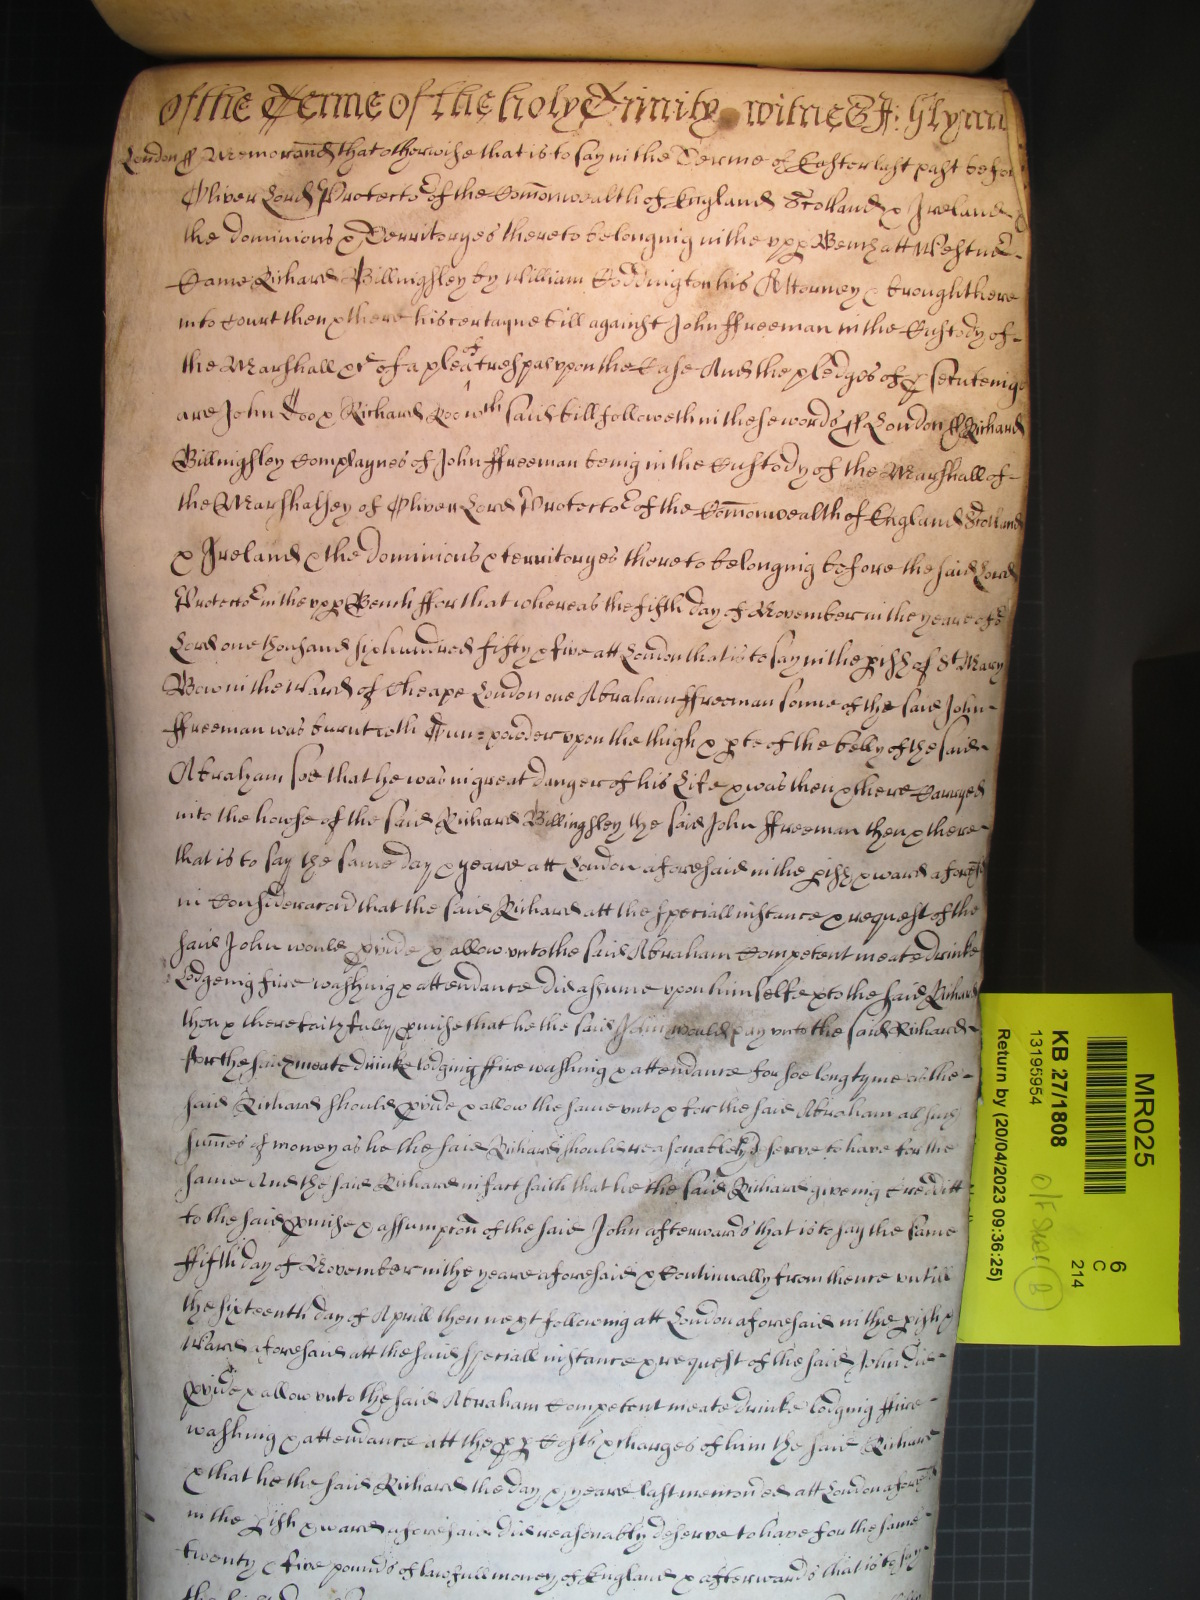 Of the Terme of the holy Trinity witnes J: Glynn
London ss Memorand that otherwise that is to say in the Terme of Easter last past before
Oliver Lord Protector of the Comonwealth of England Scotland & Ireland &
the dominions & Territoryes thereto belonging in the upp Bench att Westmr
Came Richard Billingsley by William Coddington his Attorney & brought here
into Court then & there his certayne bill against John ffreeman in the Custody of
the Marshall &c of a plea of trespas upon the Case And the pledges of p secuteing
are John Doo & Richard Roo wch said bill followeth in these words ss London ss Richard
Billingsley Complaynes of John ffreeman being in the Custody of the Marshall of
the Marshalsey of Oliver Lord Protector of the Comonwealth of England Scotland
& Ireland & the dominions & territoryes thereto belonging before the said Lord
Protector in the upp Bench ffor that whereas the fifth day of November in the yeare of or
Lord one thousand six hundred fifty & five att London that is to say in the pish of St Mary
Bow in the Ward of Cheape London one Abraham ffreeman sonne of the said John
ffreeman was burnt with Gun=powder upon the thigh & pte of the belly of the said
Abraham soe that he was in great danger of his Life & was then & there Carryed
into the howse of the said Richard Billingsley the said John ffreeman then & there
that is to say the same day & yeare att London aforesaid in the pish & ward aforesd
in Consideracon that the said Richard att the speciall instance & request of the
said John would pvide & allow unto the said Abraham Competent meate drinke
Lodgeing fire washing & attendance did assume upon himselfe & to the said Richard
then & there faithfully pmise that he the said John would pay unto the said Richard
for the said meate drinke lodging ffire washing & attendance for soe long tyme as the
said Richard should pvide & allow the same unto & for the said Abraham all such
sumes of money as he the said Richard should reasonably deserve to have for the
same And the said Richard in fact saith that he the said Richard giveing Creditt
to the said pmise & assumpcon of the said John afterwards that is to say the same
ffifth day of November in the yeare aforesaid & Continually from thence untill
the sixteenth day of Aprill then next following att London aforesaid in the pish &
Ward aforesaid att the said speciall instance & request of the said John did
pvide & allow unto the said Abraham Competent meate drinke lodging ffire
washing & attendance att the pp Costs & charges of him the said Richard
& that he the said Richard the day & yeare last menconed att London aforesd
in the pish & ward aforesaid did reasonably deserve to have for the same
twenty & five pounds of lawfull money of England & afterwards that is to say
MR025
6
C
214
KB 27/1808
13195954
Return by (20/04/2023 09:36:25)